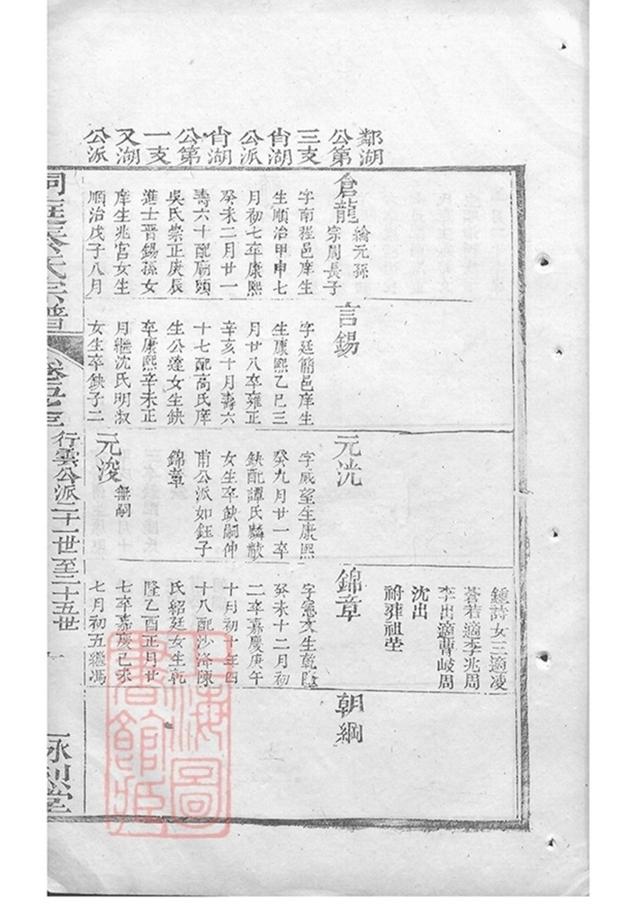 鄰湖
公第
三支
肖湖
公派
肖湖
公第
一支
又湖
公派
倉龍
綸元孫
宗周長子
字南程邑庠生
生順治甲申七
月初七卒康熙
癸未二月廿一
壽六十配廟頭
吳氏崇正庚辰
進士晉錫孫女
庠生兆宮女生
順治戊子八月
言錫
字廷簡邑庠生
生康熙乙巳三
月廿八卒雍正
辛亥十月壽六
十七配高氏庠
生公蓬女生缺
卒康熙辛未正
月繼沈氏明淑
女生卒缺子二
元洸
字威望生康熙
癸九月廿一卒
缺配譚氏麟徵
女生卒缺嗣仲
甫公派如鈺子
錦章
元浚
無嗣
鍾詩女三適凌
蒼若適李兆周
李出適曹岐周
沈出
祔葬祖塋
錦章
字雲文生乾隆
癸未十二月初
二卒嘉慶庚午
十月初十年四
十八配沙洚陳
氏紹廷女生乾
隆乙酉正月廿
七卒嘉慶己未
七月初五繼馮
朝綱
洞庭秦氏宗譜
行雲公派二十一世至二十五世
詠烈堂
上海圖書館藏